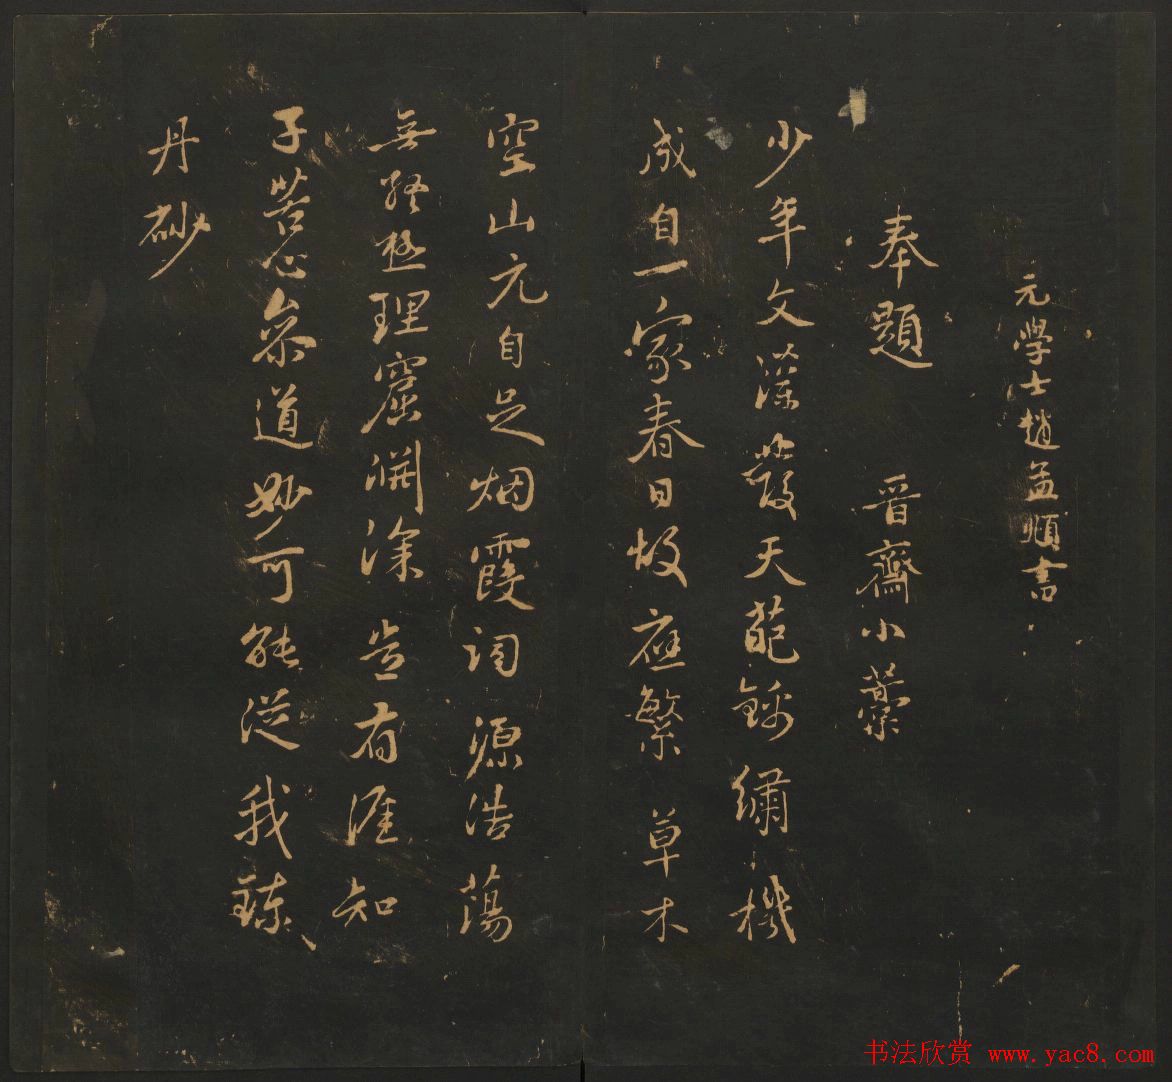 元學士趙孟頫書
奉題 晉齋小藁
少年文藻發天葩錦繡機
成自一家春日故應繁草木
空山元自足烟霞詞源浩蕩
無終極理窟淵深豈有涯知
子苦心參道妙可能從我鍊
丹砂
书法欣赏 www.yac8.com